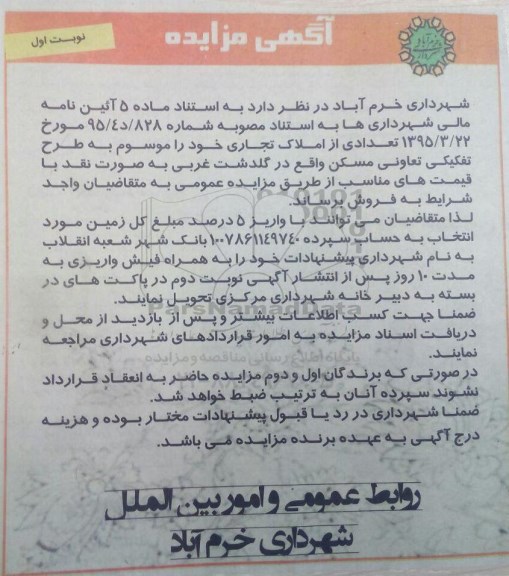 آگهی مزایده
نوبت اول
شهرداری خرم آباد در نظر دارد به استناد ماده ۵ آئین نامه
مالی شهرداری ها به استناد مصوبه شماره ۹۵/د۴/۸۲۸ مورخ
۱۳۹۵/۳/۲۲ تعدادی از املاک تجاری خود را موسوم به طرح
تفکیکی تعاونی مسکن واقع در گلدشت غربی به صورت نقد با
قیمت های مناسب از طریق مزایده عمومی به متقاضیان واجد
شرایط به فروش برساند.
لذا متقاضیان می توانند با واریز ۵ درصد مبلغ کل زمین مورد
انتخاب به حساب سپرده ۱۰۰۷۸۶۱۱۴۹۷۴۰ بانک شهر شعبه انقلاب
به نام شهرداری پیشنهادات خود را به همراه فیش واریزی به
مدت ۱۰ روز پس از انتشار آگهی نوبت دوم در پاکت های در
بسته به دبیر خانه شهرداری مرکزی تحویل نمایند.
ضمنا جهت کسب اطلاعات بیشتر و پس از بازدید از محل و
دریافت اسناد مزایده به امور قراردادهای شهرداری مراجعه
نمایند.
در صورتی که برندگان اول و دوم مزایده حاضر به انعقاد قرارداد
نشوند سپرده آنان به ترتیب ضبط خواهد شد.
ضمنا شهرداری در رد یا قبول پیشنهادات مختار بوده و هزینه
درج آگهی به عهده برنده مزایده می باشد.
روابط عمومی و امور بین الملل
شهرداری خرم آباد
ParsNamadData
پایگاه اطلاع رسانی مناقصه و مزایده